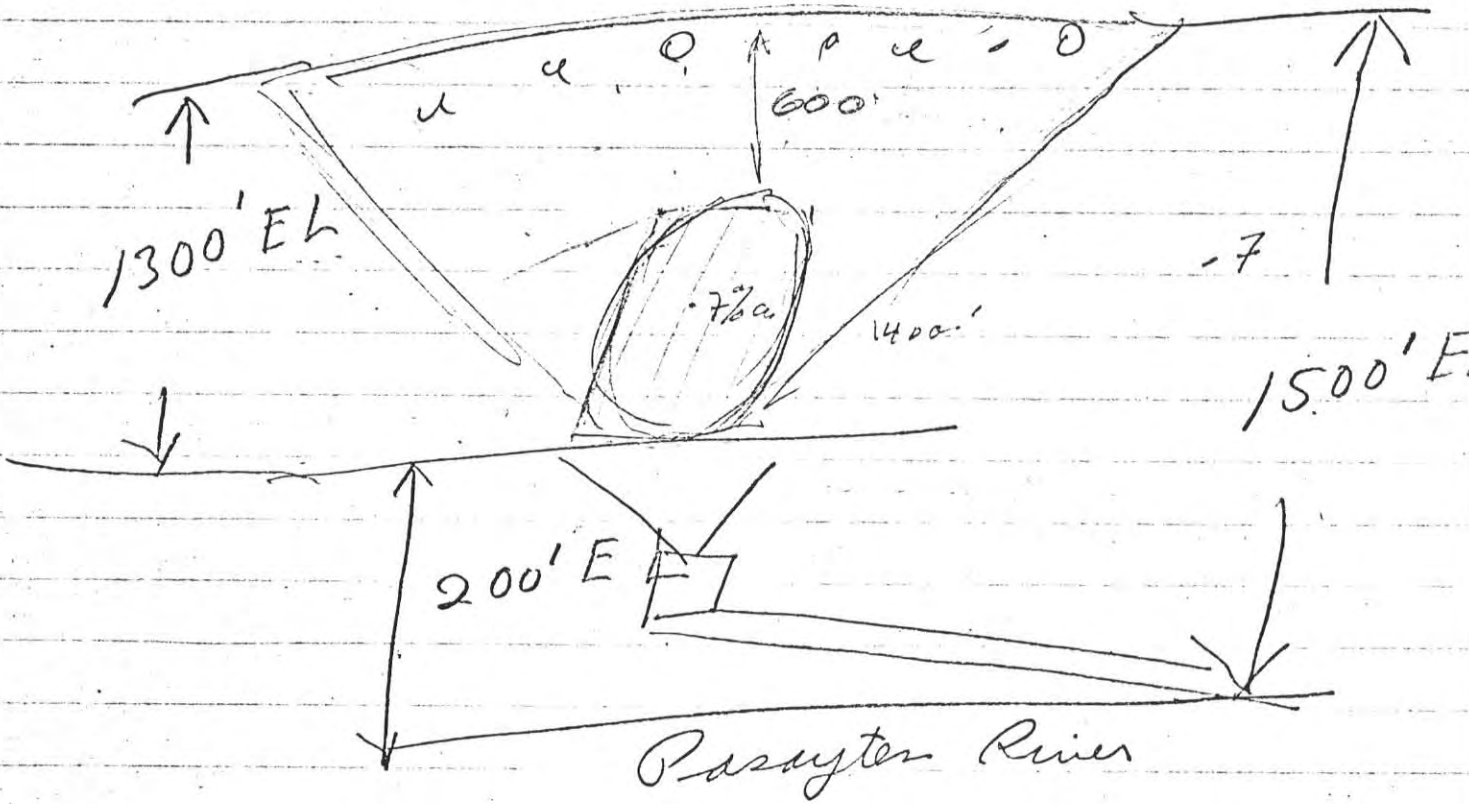 600'
1300' EL
.7
.7%
1400'
1500' E
200' EL
Pasayten River